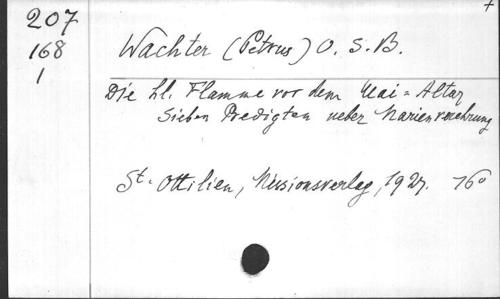 207
168
1
Wachter (Petrus) O. S. B.
Die hl. Flamme vor dem Mai = Altar
Sieben Predigten ueber Marienverehrung
St. Ottilien, Missionsverlag, 1927. 16°